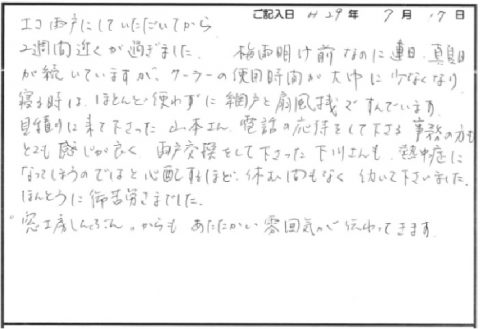 ご記入日 H29年 7月 17日
エコ雨戸にしていただいてから
2週間近くが過ぎました。 梅雨明け前なのに連日、真夏日
が続いていますが、クーラーの使用時間が大巾に少なくなり
寝る時は、ほとんど使わずに網戸と扇風機ですんでいます。
見積りに来て下さった山本さん、電話の応待をして下さる事務の方も
とても感じが良く 雨戸交換をして下さった下川さんも、熱中症に
なってしまうのではと心配するほど、休む間もなく 働いて下さいました。
ほんとうに御苦労さまでした。
"窓工房しんぶん"からも あたたかい雰囲気が伝わってきます